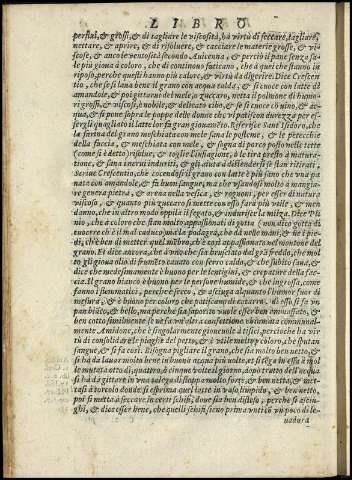 LIBRO
perflui, & grossi, & di tagliare le viscosità, ha virtù di seccare, tagliare,
nettare, & aprire, & di risoluere, & cacciare le materie grosse, & vi-
scose, & anco le ventosità secondo Auicenna, & perciò il pane senza sa-
le più gioua à coloro, che di continouo faticano, che à quei che stanno in
riposo, perche questi hanno più calore, & virtù da digerire. Dice Crescen-
tio, che se si laua bene il grano con acqua calda, & si cuoce con latte di
amandole, & poi gettarui del mele, ò zuccaro, netta il polmone di humo
ri grossi, & viscosi, è nobile, & delicato cibo, & se si cuoce cō vino, & ac-
qua, & si pone supra le poppe delle donne che patiscon durezza per es-
serli quagliato il latte lor fa gran giouamēto. Referisce Sant'Isidoro, che
la farina del grano meschiata con mele sana le posteme, & le petecchie
della faccia, & meschiata con mele, & sogna di porco posto nelle tette
(come si è detto) risolue, & toglie l'infiagione, & le tira presto à matura-
tione, & sana i nerui induriti, & gli aiuta à distendersi se stan ritirati.
Scriue Crescentio, che cocendosi il grano con latte è più sano che vna pa
nata con amandole, & fa buon sangue, ma che vsandosi molto à mangia-
re genera pietra, & arena nella vesica, & regnoni, per esser di natura
viscoso, & quanto più zuccaro si mette con esso farà più vtile, & men
danno, che in altro modo oppila il fegato, & indurisce la milza. Dice Pli
nio, che à coloro che stan molto appassionati di gotta (non dico gotta di
cuocere ch'è il mal caduco) ma la podagra, che dà nelle mani, & ne i pie-
di, ch'è ben di metter quel mēbro, ch'è così appassionato nel montone del
grano. Et dice ancora, che'l vino che fia brusciato dal grā freddo, che mol
to gli gioua olio di frumēto cauato con ferro caldo, & che subito sana, &
dice che medesimamente è buono per le lentigini, & crepature della fac-
cia. Il grano bianco è buono per le persone humide, & che ingrossa, come
fanno i flemmatici, perche è secco, & asciuga alquanto l'humor fuor di
mesura, & è buono per coloro che patiscano di catarro. di esso si fa vn
pan biāco, & bello, ma perche sia saporito vuole esser ben commassato, &
ben cotto similmente se ne fa vn' olio à cauationa nominata communmal-
mente Amidone, che è singolarmente gioueuole à tisici, percioche ha vir
tù di consolidar le piaghe del petto, & è vtile molto à coloro, che sputan
sangue, & si fa così. Bisogna pigliare il grano, che sia molto ben netto, &
si hà da lauar molto bene in buona acqua più volte, et si tēga in essa à mol
le mutata otto dì, quattro, ò cinque volte il giorno, dopò tratto dell'acqua
si hà da gittare in vna tulega di stoppa molto forte, & ben netta, & met-
tasi à torcolo donde si esprima quel latte in vaso limpido, & ben netto,
poi si metta à seccare in certi schifi, doue stia ben disteso, perche si ascin-
ghi, & dice esser bene, che quelli schifi sieno prima vnti cō vn poco di le-
uadura